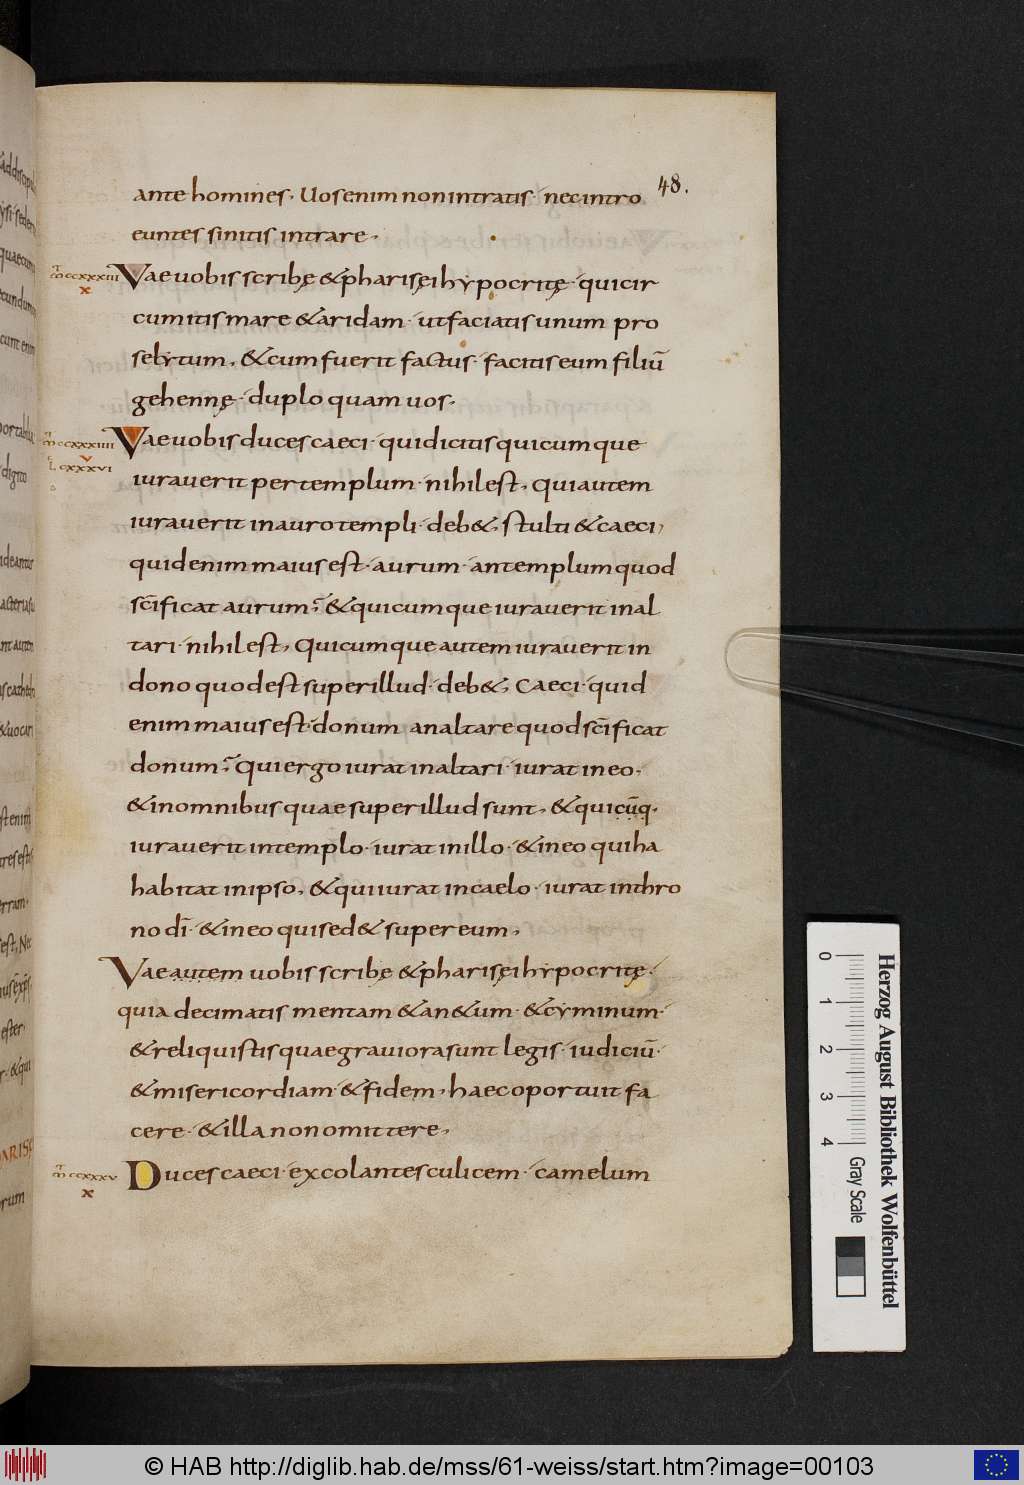 48.
ante homines. Uos enim non intratis. nec intro
euntes sinitis intrare.
Vae uobis scribę & pharisęi hypocritę. qui cir
cumitis mare & aridam. ut faciatis unum pro
selytum. & cum fuerit factus. facitis eum filiū
gehennę. duplo quam uos.
Vae uobis duces caeci. qui dicitis quicumque
iurauerit per templum. nihil est. qui autem
iurauerit in auro templi. deb&. stulti & caeci,
quid enim maius est. aurum. an templum quod
scīficat aurum? & quicumque iurauerit in al
tari. nihil est. Quicumque autem iurauerit in
dono quod est super illud. deb&. Caeci. quid
enim maius est. donum an altare quod scīficat
donum? Qui ergo iurat in altari. iurat in eo.
& in omnibus quae super illud sunt. & quicūq.
iurauerit in templo. iurat in illo. & in eo qui ha
habitat in ipso. & qui iurat in caelo. iurat in thro
no dī. & in eo qui sed& super eum.
Vae autem uobis scribę & pharisęi hypocritę.
quia decimatis mentam & an&um. & cyminum.
& reliquistis quae grauiora sunt legis. iudiciū.
& misericordiam. & fidem. haec oportuit fa
cere. & illa non omittere.
Duces caeci. excolantes culicem. camelum
m ccxxxiii
x
m ccxxxiiii
v
L cxxxvi
m ccxxxv
x
Herzog August Bibliothek Wolfenbüttel
0 1 2 3 4 Gray Scale
© HAB http://diglib.hab.de/mss/61-weiss/start.htm?image=00103